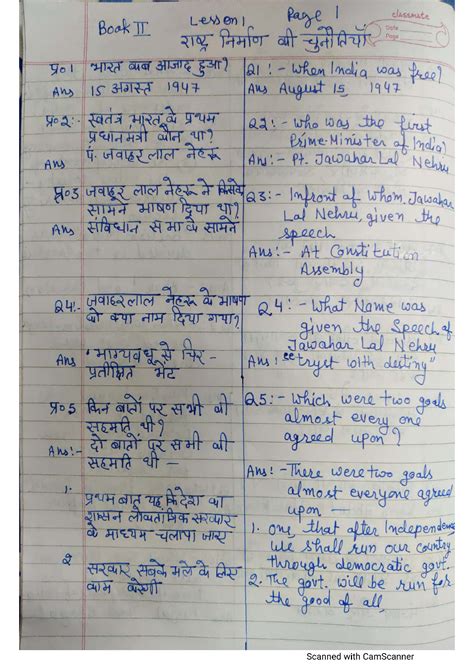 Book II Lesson 1 Page 1
classmate
Date
Page
राष्ट्र निर्माण की चुनौतियाँ
प्र०1 भारत कब आजाद हुआ?
Ans 15 अगस्त 1947
प्र०2:- स्वतंत्र भारत के प्रथम
प्रधानमंत्री कौन था?
Ans पं. जवाहर लाल नेहरू
प्र०3 जवाहर लाल नेहरू ने किसके
सामने भाषण दिया था?
Ans संविधान सभा के सामने
Q4:- जवाहरलाल नेहरू के भाषण
को क्या नाम दिया गया?
Ans "भाग्यवधू से चिर-
प्रतीक्षित भेंट
प्र०5 किन बातों पर सभी की
सहमति थी?
Ans:- दो बातों पर सभी की
सहमति थी -
1. प्रथम बात यह कि देश का
शासन लोकतांत्रिक सरकार
के माध्यम चलाया जाए
2 सरकार सबके भले के लिए
काम करेगी
Q1:- When India was free?
Ans August 15, 1947
Q2:- who was the first
Prime Minister of India?
An:- Pt. Jawahar Lal Nehru
Q3:- Infront of whom Jawahar
Lal Nehru, given the
speech
Ans:- At Constitution
Assembly
Q4:- What Name was
given the Speech of
Jawahar Lal Nehru
Ans: "tryst with destiny"
Q5:- Which were two goals
almost every one
agreed upon?
Ans:- There were two goals
almost everyone agreed
upon —
1. one, that after Independence
we shall run our country
through democratic govt.
2. The govt. will be run for
the good of all
Scanned with CamScanner